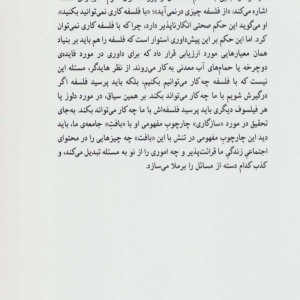 اشاره می‌کند: «از فلسفه چیزی درنمی‌آید»؛ «با فلسفه کاری نمی‌توانید بکنید».
او می‌گوید این حکم صحتی انکارناپذیر دارد، چراکه با فلسفه کاری نمی‌توان
کرد. اما این حکم بر این پیش‌داوری استوار است که فلسفه را هم باید بر بنیاد
همان معیارهایی مورد ارزیابی قرار داد که برای داوری در مورد فایده‌ی
دوچرخه یا حمام‌های آب معدنی به کار می‌روند. از نظر هایدگر، مسئله این
نیست که با فلسفه چه‌کار می‌توانیم بکنیم، بلکه باید پرسید فلسفه اگر
درگیرش شویم با ما چه‌کار می‌تواند بکند. بر همین سیاق، در مورد دلوز یا
هر فیلسوف دیگری باید پرسید فلسفه‌اش با ما چه‌کار می‌تواند بکند. به‌جای
تحقیق در مورد «سازگاری» چارچوب مفهومی او با «بافت» جامعه‌ی ما، باید
دید این چارچوب مفهومی در تنش با این «بافت» چه چیزهایی را در محتوای
اجتماعی زندگی ما قرائت‌پذیر و چه اموری را از نو به مسئله تبدیل می‌کند، و
کذب کدام دسته از مسائل را برملا می‌سازد.